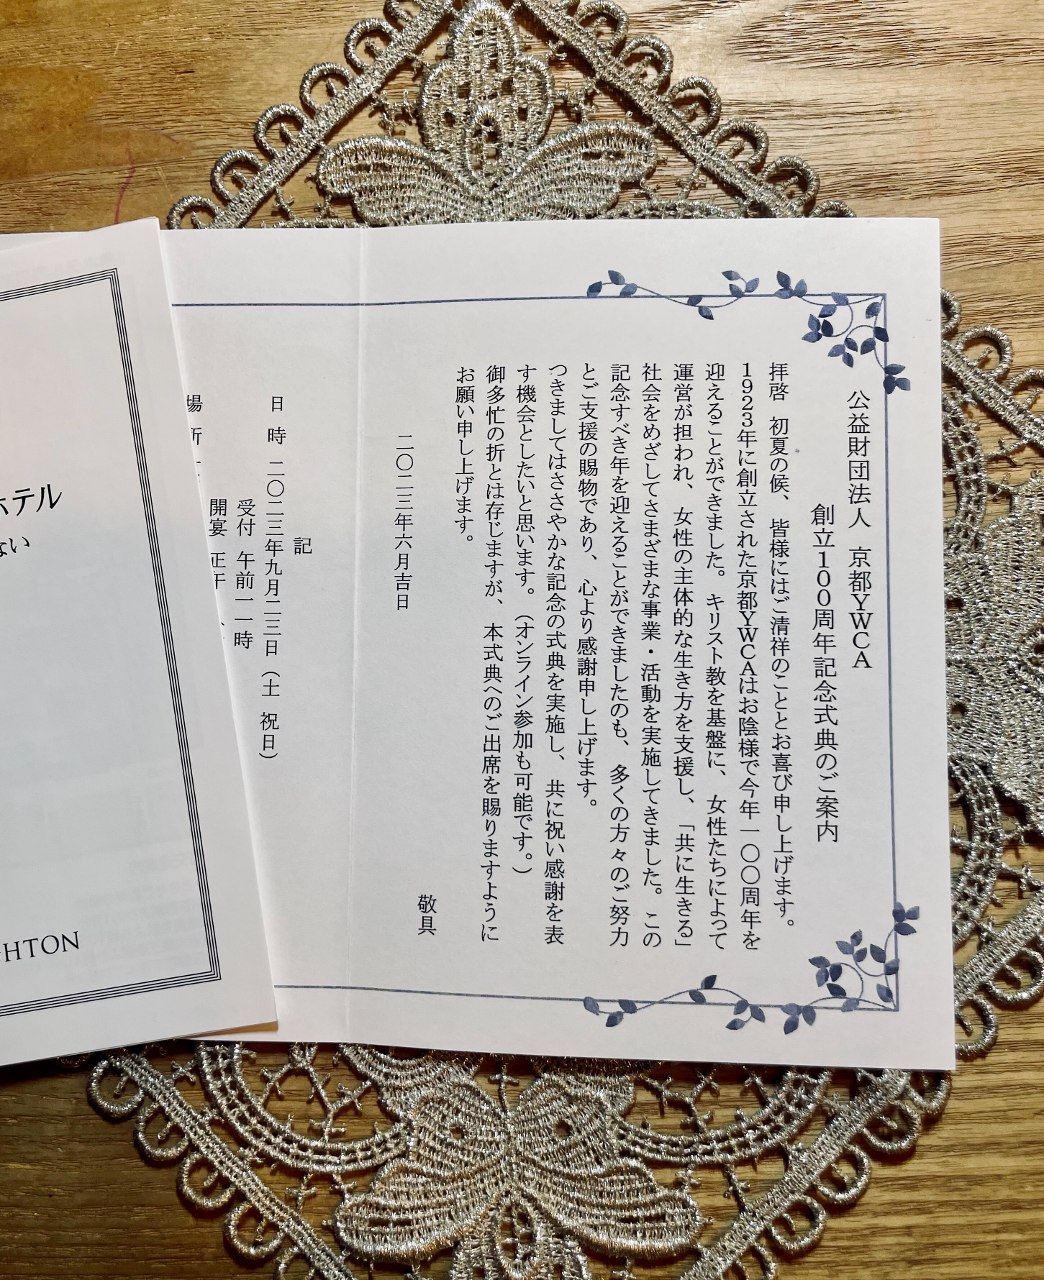 公益財団法人 京都YWCA
創立100周年記念式典のご案内
拝啓 初夏の候、皆様にはご清祥のこととお喜び申し上げます。
1923年に創立された京都YWCAはお陰様で今年一〇〇周年を
迎えることができました。キリスト教を基盤に、女性たちによって
運営が担われ、女性の主体的な生き方を支援し、「共に生きる」
社会をめざしてさまざまな事業・活動を実施してきました。この
記念すべき年を迎えることができましたのも、多くの方々のご努力
とご支援の賜物であり、心より感謝申し上げます。
つきましてはささやかな記念の式典を実施し、共に祝い感謝を表
す機会としたいと思います。（オンライン参加も可能です。）
御多忙の折とは存じますが、本式典へのご出席を賜りますように
お願い申し上げます。
敬具
二〇二三年六月吉日
記
日 時 二〇二三年九月二三日（土 祝日）
受付 午前一一時
開宴 正午
場 所
ホテル
ない
GHTON